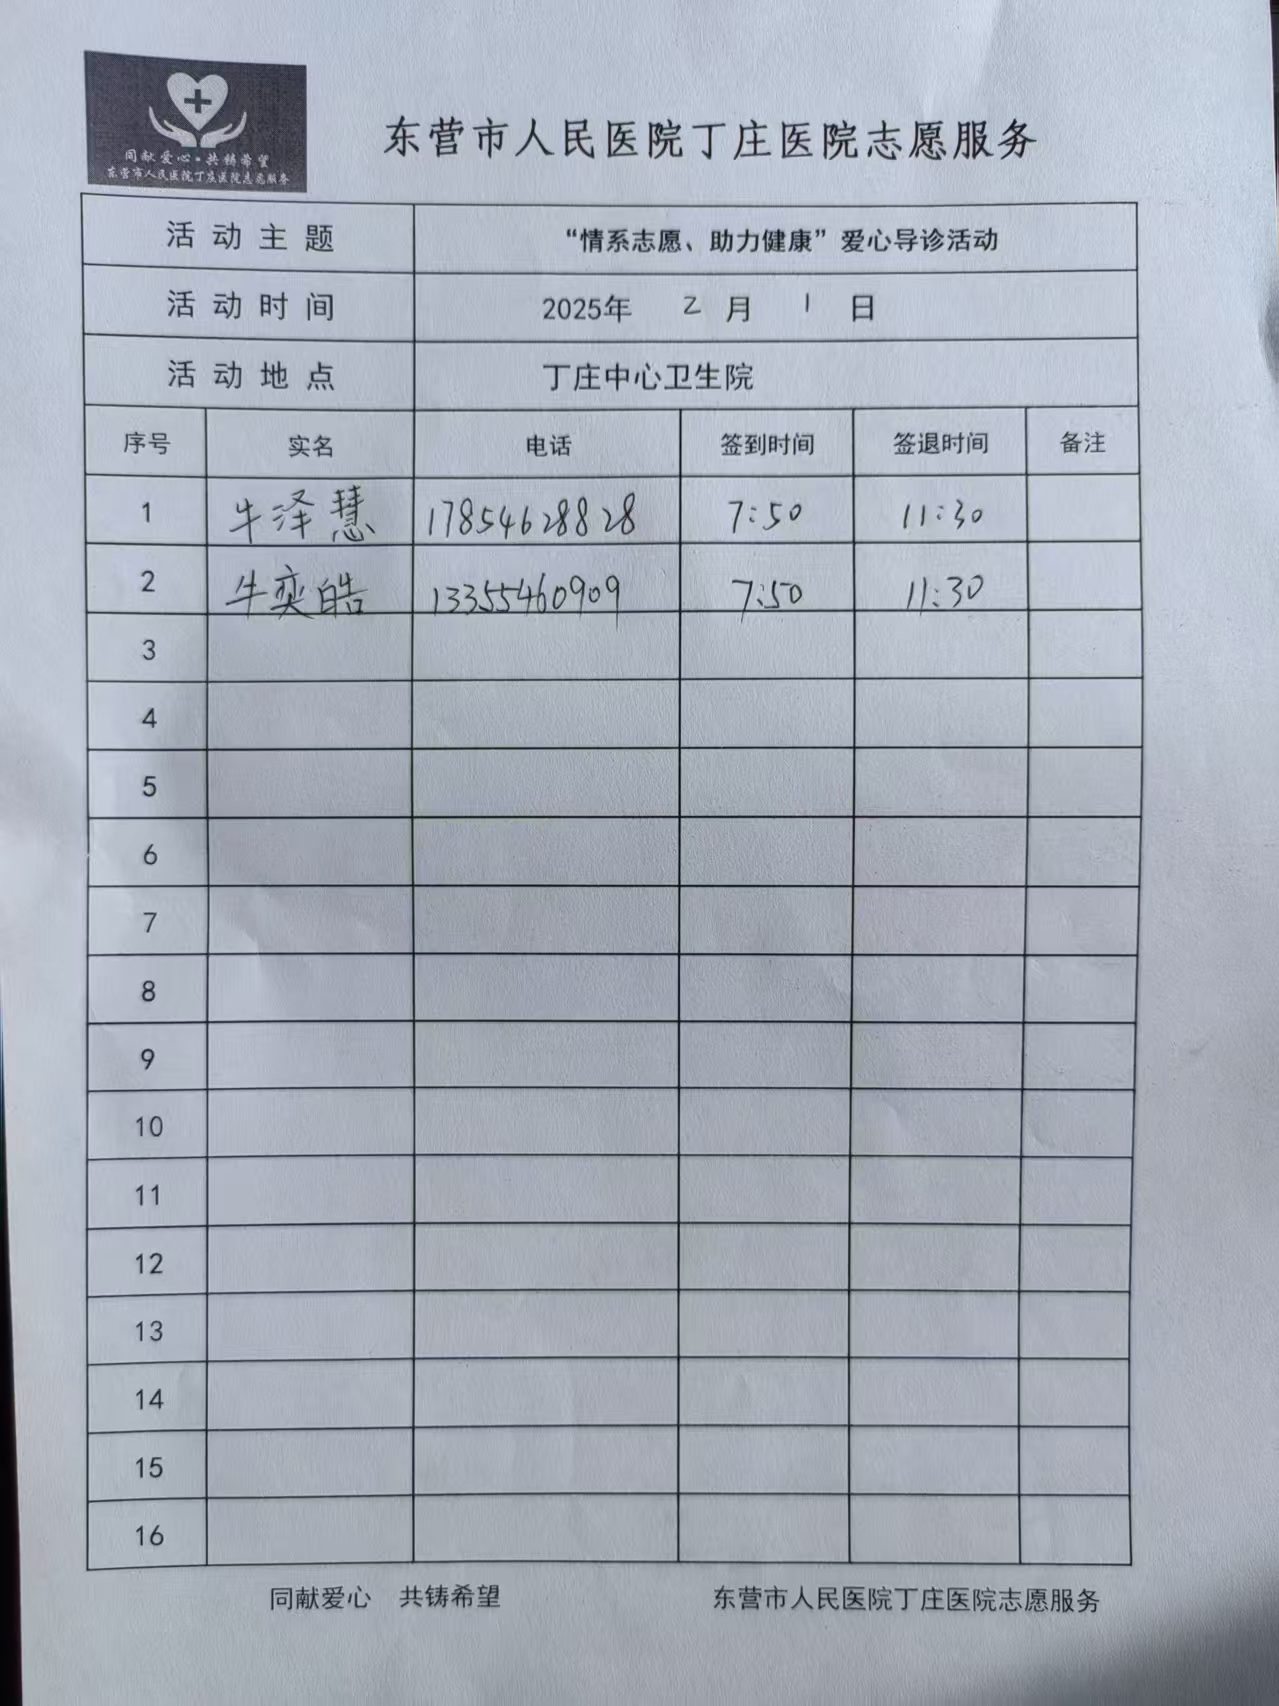 同献爱心·共铸希望
东营市人民医院丁庄医院志愿服务
东营市人民医院丁庄医院志愿服务
活动主题 “情系志愿、助力健康”爱心导诊活动
活动时间 2025年 2 月 1 日
活动地点 丁庄中心卫生院
序号 实名 电话 签到时间 签退时间 备注
1 牛泽慧 17854628828 7:50 11:30
2 牛奕皓 13355460909 7:50 11:30
3
4
5
6
7
8
9
10
11
12
13
14
15
16
同献爱心 共铸希望 东营市人民医院丁庄医院志愿服务